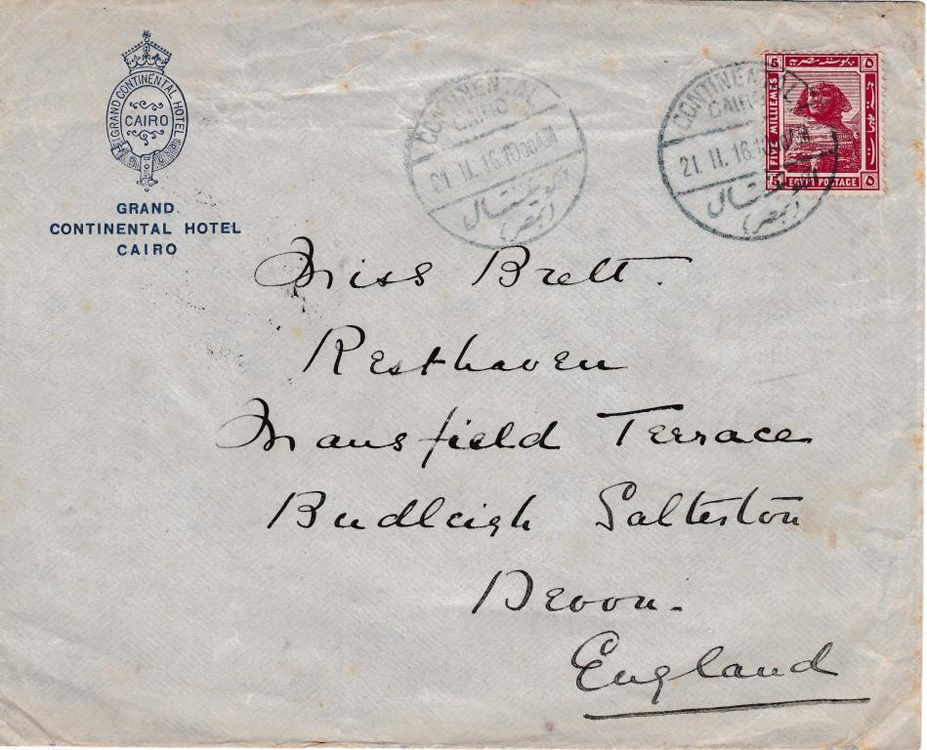 GRAND CONTINENTAL HOTEL
CAIRO
GRAND
CONTINENTAL HOTEL
CAIRO
CONTINENTAL
CAIRO
21. II. 16. 10
كونتننتال
(مصر)
CONTINENTAL
CAIRO
21. II. 16. 10
(مصر)
5 ٥
FIVE MILLIEMES
5 EGYPT POSTAGE ٥
Miss Brett.
Resthaven
Mansfield Terrace
Budleigh Salterton
Devon.
England